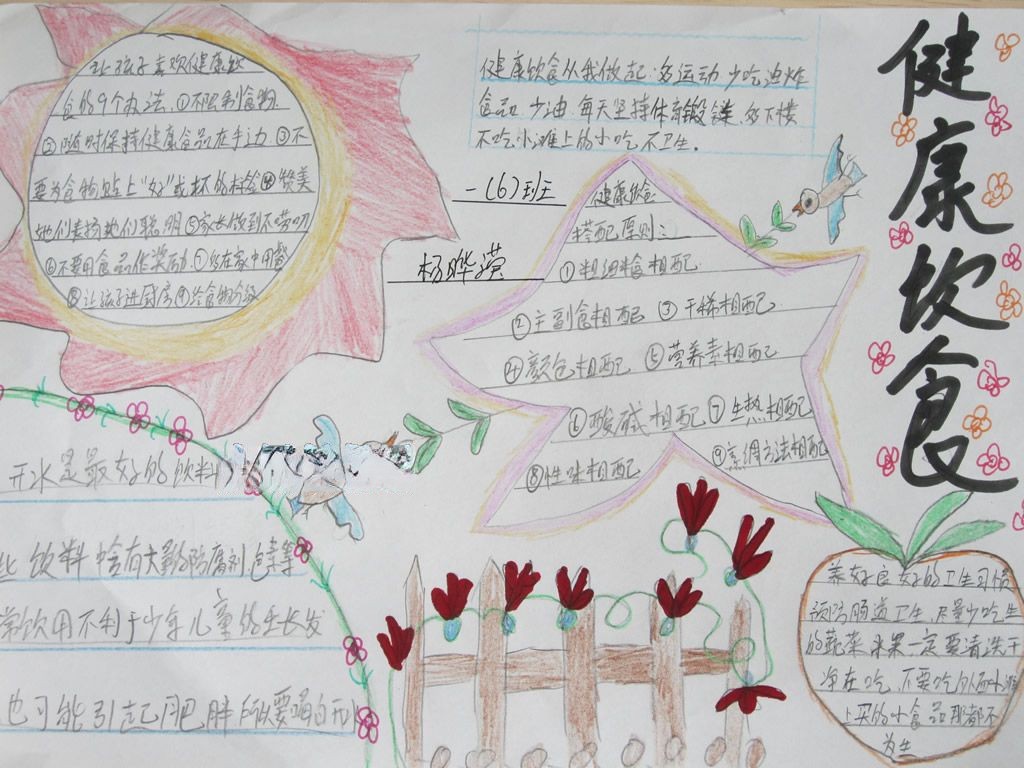 健康饮食
让孩子喜欢健康饮
食的9个办法.①不限制食物.
②随时保持健康食品在手边③不
要为食物贴上“好”或坏的标签④赞美
她们表扬她们聪明⑤家长做到不唠叨
⑥不要用食品作奖励.⑦多在家中用餐
⑧让孩子进厨房⑨给食物分级
健康饮食从我做起:多运动少吃油炸
食品.少油.每天坚持体育锻鍊.多下楼
不吃小滩上的小吃不卫生.
一(6)班
杨晔
健康饮食
搭配原则:
①粗细粮相配.
②主副食相配③干稀相配
④颜色相配⑤营养素相配
⑥酸碱相配⑦生热相配
⑧性味相配⑨烹调方法相配
开水是最好的饮料
些饮料含有大量防腐剂色素等
常饮用不利于少年儿童的生长发
也可能引起肥胖所以要喝白开
养好良好的卫生习惯
预防肠道卫生.尽量少吃生
的蔬菜水果一定要清洗干
净在吃.不要吃外面小滩
上买的小食品那都不
为生